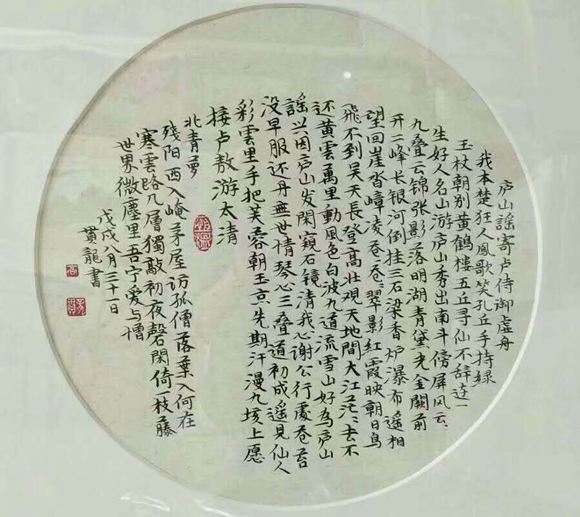 庐山謡寄卢侍御虚舟
我本楚狂人風歌笑孔丘手持緑
玉杖朝别黄鶴楼五丘寻仙不辞远一
生好入名山游庐山秀出南斗傍屏风云
九叠云锦张影落明湖青黛光金闕前
开二峰长银河倒挂三石梁香炉瀑布遥相
望回崖沓嶂凌苍苍翠影红霞映朝日鸟
飛不到吴天長登高壮观天地間大江茫茫去不
还黄雲萬里動風色白波九道流雪山好為庐山
謡兴因庐山发閑窥石镜清我心谢公行處苍苔
没早服还丹無世情琴心三叠道初成遥見仙人
彩雲里手把芙蓉朝玉京先期汗漫九垓上愿
接卢敖游太清
北青萝
残阳西入崦茅屋访孤僧落葉人何在
寒雲路几層獨敲初夜磬閑倚一枝藤
世界微塵里吾宁爱与憎
戊戌八月三十一日
贯龍書